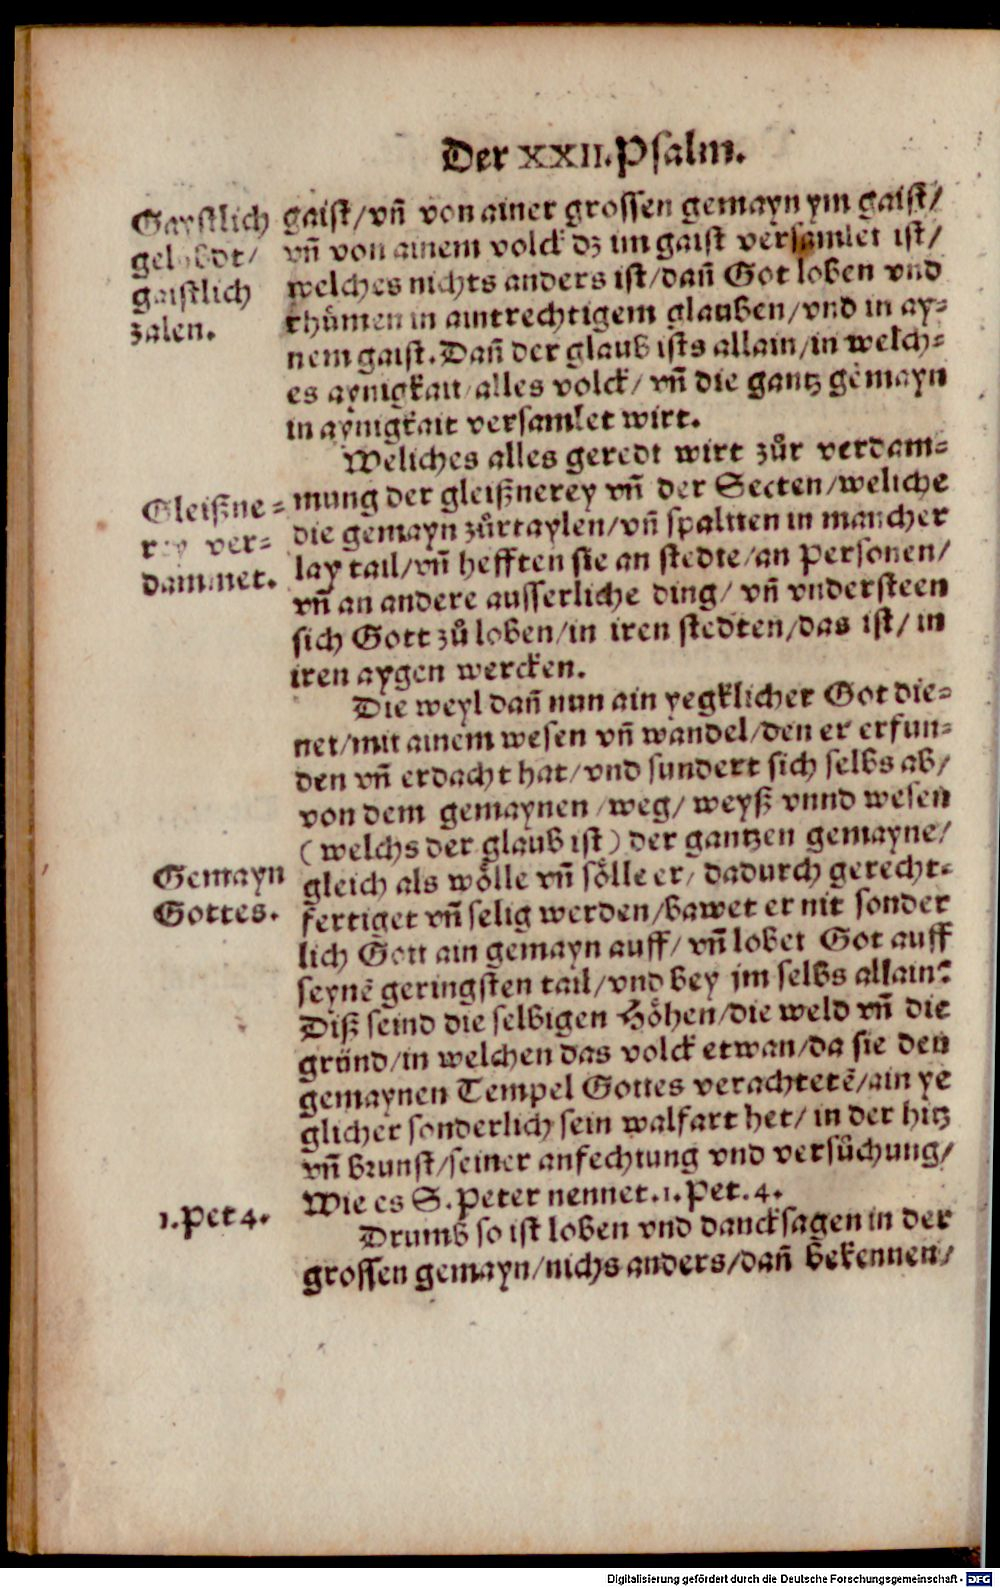 Der XXII. Psalm.
Gaystlich
gelobdt/
gaistlich
zalen.
gaist/vñ von ainer grossen gemayn ym gaist/
vñ von ainem volck dz im gaist versamlet ist/
welches nichts anders ist/dañ Got loben vnd
rhůmen in aintrechtigem glauben/vnd in ay=
nem gaist. Dañ der glaub ists allain/in welch=
es aynigkait alles volck/ vñ die gantz gemayn
in aynigkait versamlet wirt.
Weliches alles geredt wirt zůr verdam=
Gleißne=
rey ver=
dammet.
mung der gleißnerey vñ der Secten/weliche
die gemayn zůrtaylen/vñ spalten in mancher
lay tail/vñ hefften sie an stedte/an Personen/
vñ an andere ausserliche ding/ vñ vndersteen
sich Gott zů loben/in iren stedten/das ist/ in
iren aygen wercken.
Die weyl dañ nun ain yegklicher Got die=
net/mit ainem wesen vñ wandel/den er erfun=
den vñ erdacht hat/vnd sundert sich selbs ab/
von dem gemaynen /weg/ weyß vnnd wesen
(welchs der glaub ist) der gantzen gemayne/
Gemayn
Gottes.
gleich als wölle vñ sölle er/ dadurch gerecht=
fertiget vñ selig werden/bawet er nit sonder
lich Gott ain gemayn auff/ vñ lobet Got auff
seynē geringsten tail/vnd bey jm selbs allain?
Diß seind die selbigen Höhen/die weld vñ die
gründ/in welchen das volck etwan/da sie den
gemaynen Tempel Gottes verachtetē/ain ye
glicher sonderlich sein walfart het/ in der hitz
vñ brunst/seiner anfechtung vnd versůchung/
Wie es S. Peter nennet.1.Pet.4.
1.Pet 4.
Drumb so ist loben vnd dancksagen in der
grossen gemayn/nichs anders/dañ bekennen/
Digitalisierung gefördert durch die Deutsche Forschungsgemeinschaft - DFG